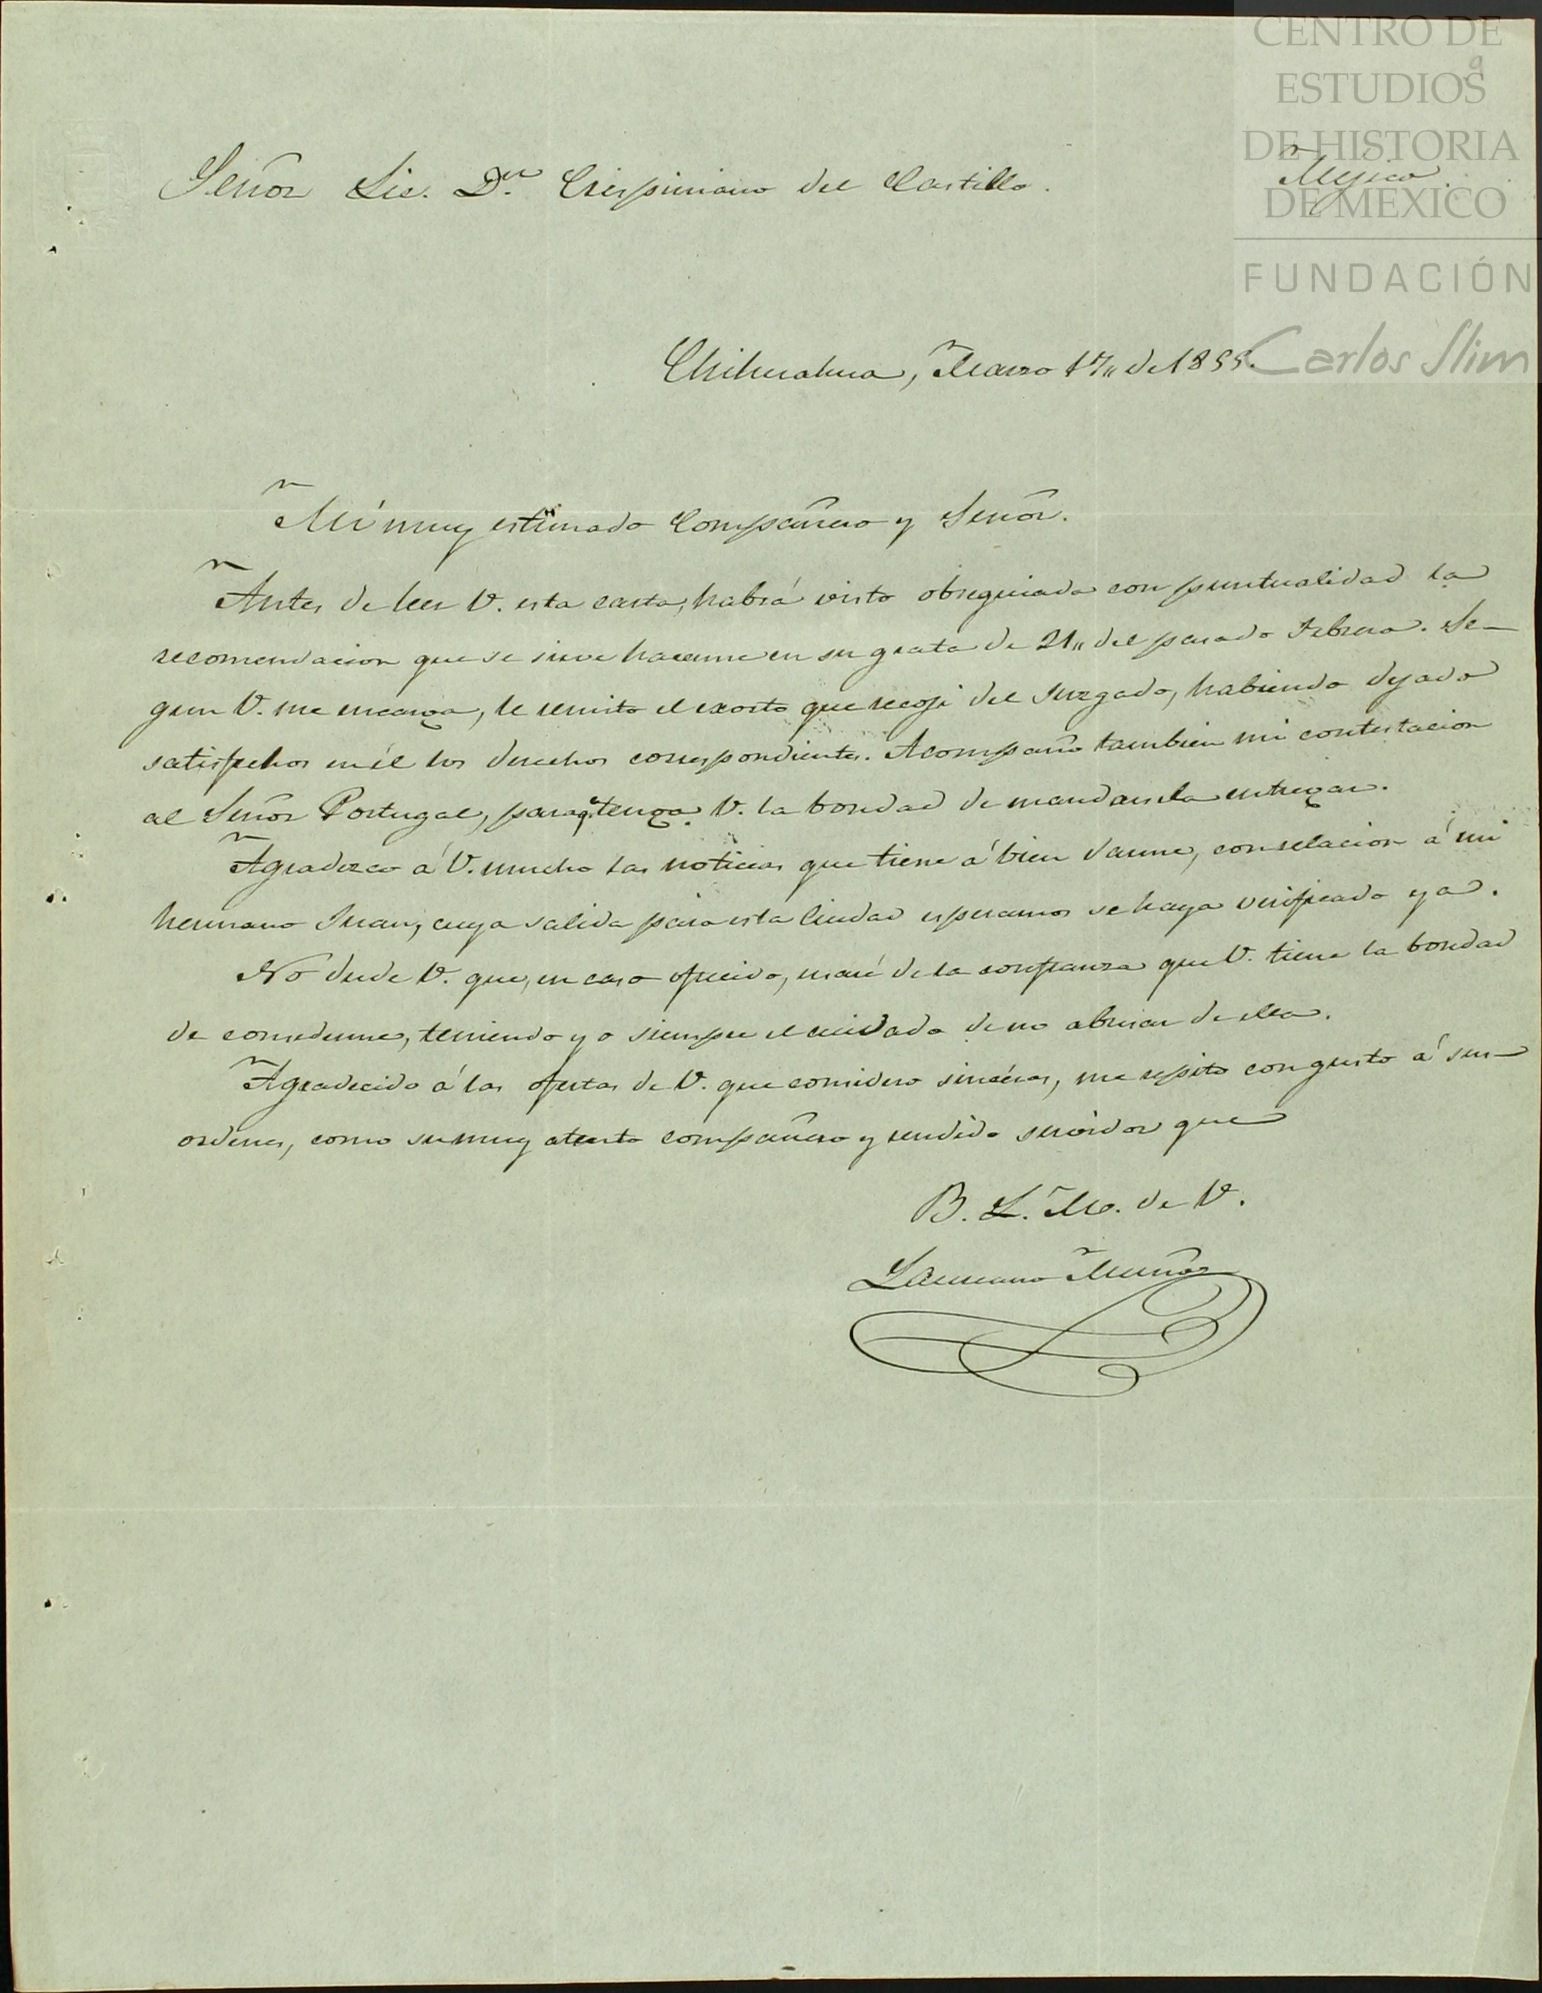 CENTRO DE
ESTUDIOS
DE HISTORIA
DE MEXICO
FUNDACIÓN
Carlos Slim
Señor Lic. Dn. Crispiniano del Castillo. Mejico.
Chihuahua, Marzo 17,, de 1855.
Mi muy estimado Compañero y Señor.
Antes de leer V. esta carta, habrá visto obsequiada con puntualidad la
recomendacion que se sirve hacerme en su grata de 21,, del pasado Febrero. Se-
gun V. me encarga, le remito el exorto que recoji del Juzgado, habiendo dejado
satisfechos en él los derechos correspondientes. Acompaño tambien mi contestacion
al Señor Portugal, para q.e tenga V. la bondad de mandarsela entregar.
Agradezco á V. mucho las noticias que tiene á bien darme, con relacion á mi
hermano Juan, cuya salida para esta Ciudad esperamos se haya verificado ya.
No dude V. que, en caso ofrecido, usaré de la confianza que V. tiene la bondad
de concederme, teniendo yo siempre el cuidado de no abusar de ella.
Agradecido á las ofertas de V. que considero sincéras, me repito con gusto á sus
ordenes, como su muy atento compañero y rendido servidor que
B. L. M. de V.
Laureano Muñoz